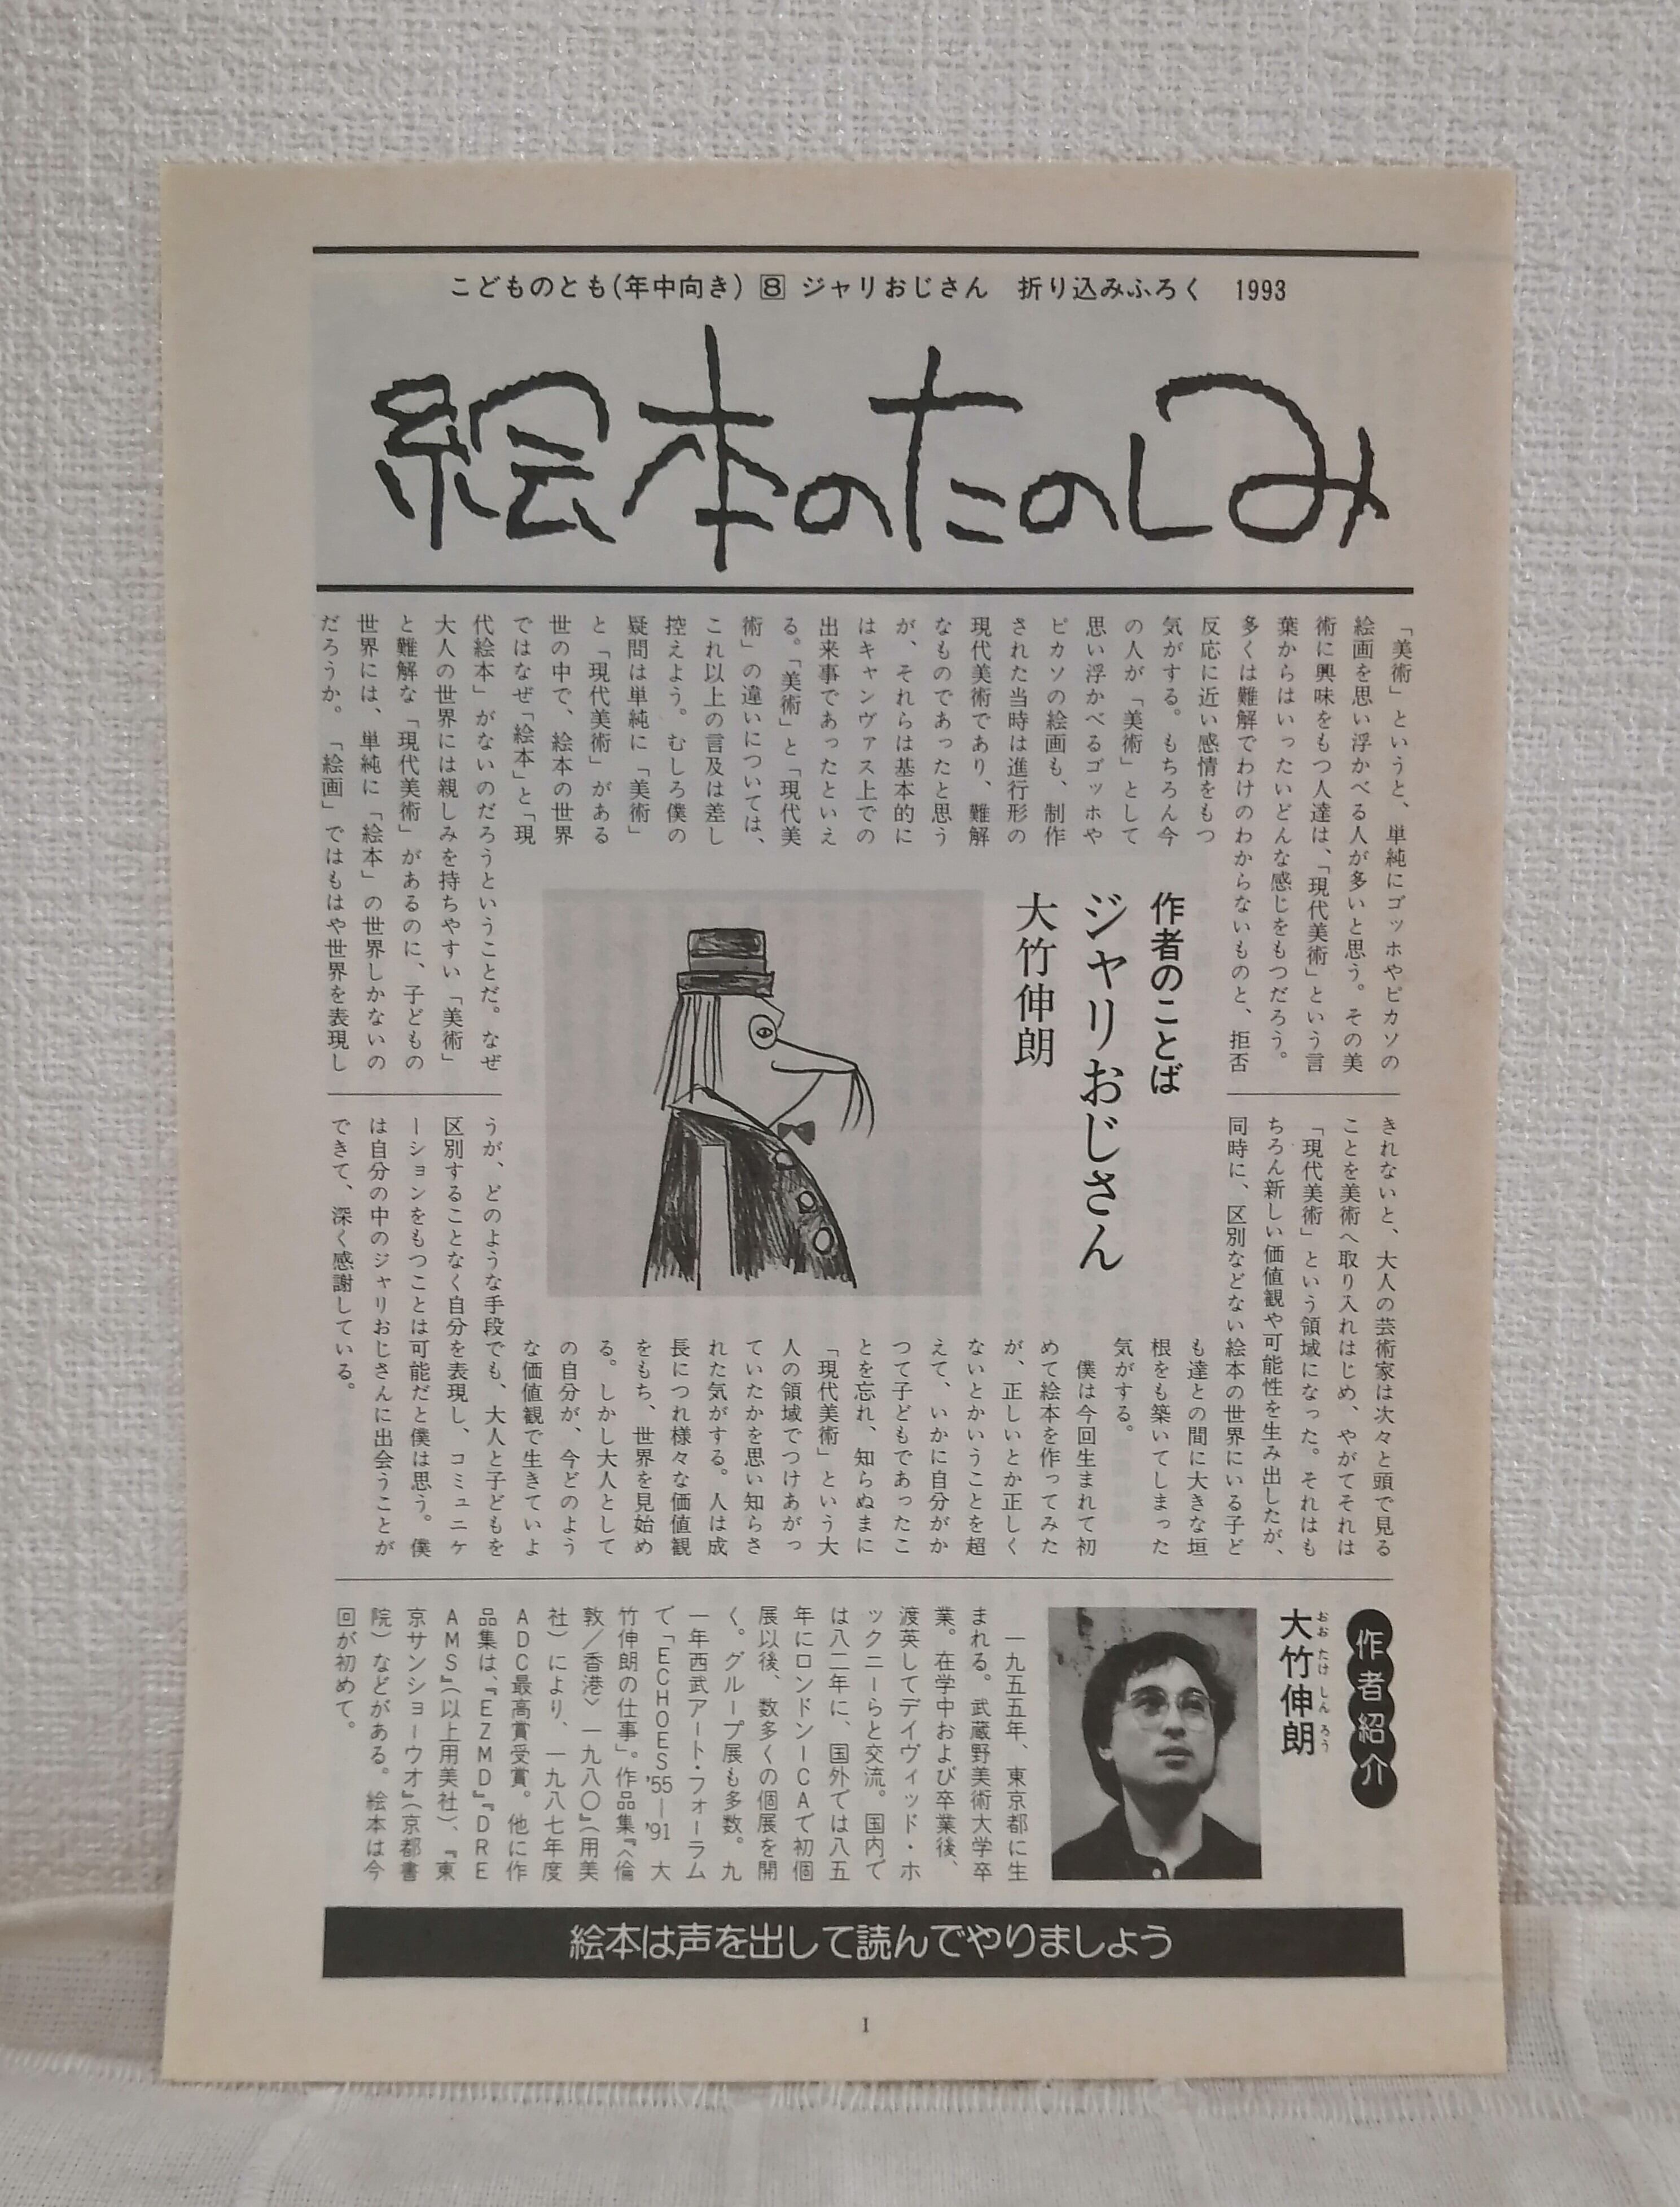 こどものとも(年中向き) 8 ジャリおじさん 折り込みふろく 1993
絵本のたのしみ
作者のことば
ジャリおじさん
大竹伸朗
「美術」というと、単純にゴッホやピカソの
絵画を思い浮かべる人が多いと思う。その美
術に興味をもつ人達は、「現代美術」という言
葉からはいったいどんな感じをもつだろう。
多くは難解でわけのわからないものと、拒否
反応に近い感情をもつ
気がする。もちろん今
の人が「美術」として
思い浮かべるゴッホや
ピカソの絵画も、制作
された当時は進行形の
現代美術であり、難解
なものであったと思う
が、それらは基本的に
はキャンヴァス上での
出来事であったといえ
る。「美術」と「現代美
術」の違いについては、
これ以上の言及は差し
控えよう。むしろ僕の
疑問は単純に「美術」
と「現代美術」がある
世の中で、絵本の世界
ではなぜ「絵本」と「現
代絵本」がないのだろうということだ。なぜ
大人の世界には親しみを持ちやすい「美術」
と難解な「現代美術」があるのに、子どもの
世界には、単純に「絵本」の世界しかないの
だろうか。「絵画」ではもはや世界を表現し
きれないと、大人の芸術家は次々と頭で見る
ことを美術へ取り入れはじめ、やがてそれは
「現代美術」という領域になった。それはも
ちろん新しい価値観や可能性を生み出したが、
同時に、区別などない絵本の世界にいる子ど
も達との間に大きな垣
根をも築いてしまった
気がする。
僕は今回生まれて初
めて絵本を作ってみた
が、正しいとか正しく
ないとかいうことを超
えて、いかに自分がか
つて子どもであったこ
とを忘れ、知らぬまに
「現代美術」という大
人の領域でつけあがっ
ていたかを思い知らさ
れた気がする。人は成
長につれ様々な価値観
をもち、世界を見始め
る。しかし大人として
の自分が、今どのよう
な価値観で生きていよ
うが、どのような手段でも、大人と子どもを
区別することなく自分を表現し、コミュニケ
ーションをもつことは可能だと僕は思う。僕
は自分の中のジャリおじさんに出会うことが
できて、深く感謝している。
作者紹介
大竹伸朗
おおたけしんろう
一九五五年、東京都に生
まれる。武蔵野美術大学卒
業。在学中および卒業後、
渡英してデイヴィッド・ホ
ックニーらと交流。国内で
は八二年に、国外では八五
年にロンドンICAで初個
展以後、数多くの個展を開
く。グループ展も多数。九
一年西武アート・フォーラム
で「ECHOES '55—'91 大
竹伸朗の仕事」。作品集『〈倫
敦／香港〉一九八〇』(用美
社）により、一九八七年度
ADC最高賞受賞。他に作
品集は、『EZMD』『DRE
AMS』(以上用美社)、『東
京サンショーウオ』(京都書
院）などがある。絵本は今
回が初めて。
絵本は声を出して読んでやりましょう
I